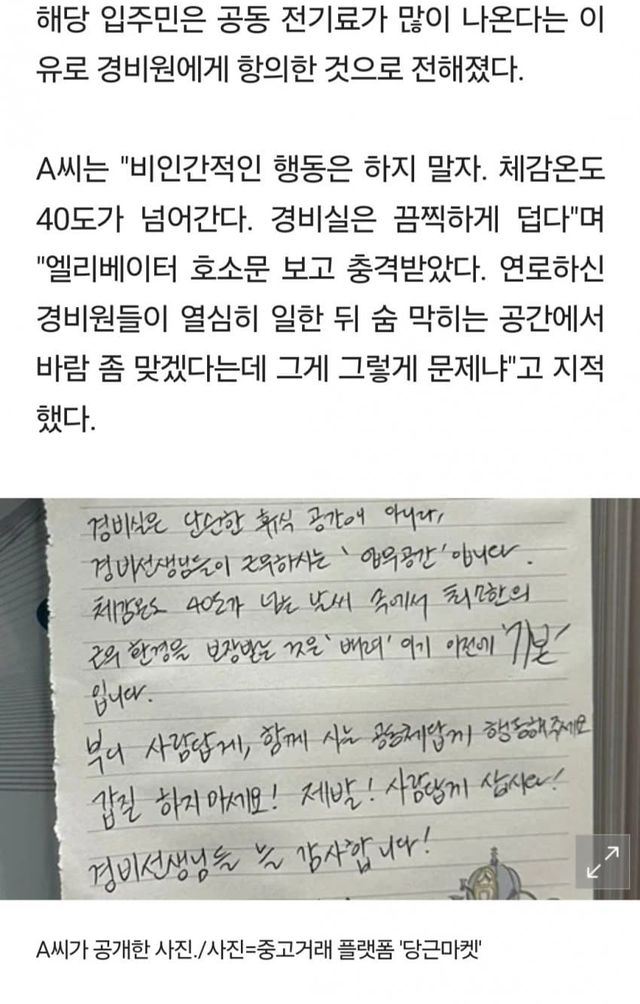 해당 입주민은 공동 전기료가 많이 나온다는 이
유로 경비원에게 항의한 것으로 전해졌다.
A씨는 "비인간적인 행동은 하지 말자. 체감온도
40도가 넘어간다. 경비실은 끔찍하게 덥다"며
"엘리베이터 호소문 보고 충격받았다. 연로하신
경비원들이 열심히 일한 뒤 숨 막히는 공간에서
바람 좀 맞겠다는데 그게 그렇게 문제냐"고 지적
했다.
경비실은 단순한 휴식 공간이 아니라,
경비선생님들이 근무하시는 '업무공간' 입니다.
체감온도 40도가 넘는 날씨 속에서 최소한의
근무 환경을 보장받는 것은 '배려' 이기 이전에 '기본'
입니다.
부디 사람답게, 함께 사는 공동체답게 행동해주세요
갑질 하지마세요! 제발! 사람답게 삽시다!
경비선생님들 늘 감사합니다!
A씨가 공개한 사진./사진=중고거래 플랫폼 '당근마켓'